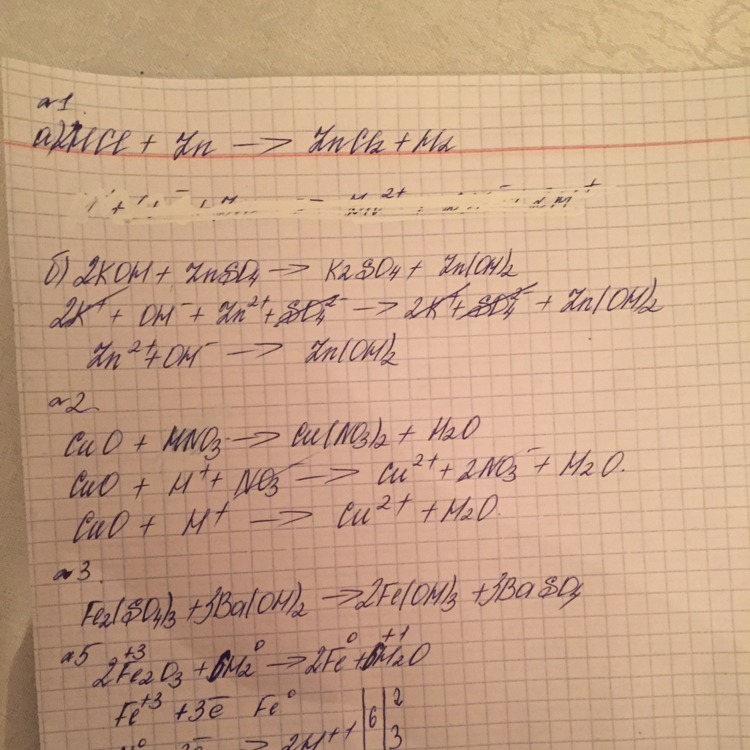 №1.
а) 2HCl + Zn → ZnCl2 + H2
б) 2KOH + ZnSO4 → K2SO4 + Zn(OH)2
2K⁺ + OH⁻ + Zn²⁺ + SO4²⁻ → 2K⁺ + SO4²⁻ + Zn(OH)2
Zn²⁺ + OH⁻ → Zn(OH)2
№2.
CuO + HNO3 → Cu(NO3)2 + H2O
CuO + H⁺ + NO3⁻ → Cu²⁺ + 2NO3⁻ + H2O.
CuO + H⁺ → Cu²⁺ + H2O.
№3.
Fe2(SO4)3 + 3Ba(OH)2 → 2Fe(OH)3 + 3BaSO4
№5 2Fe2⁺³O3 + 6H2⁰ → 2Fe⁰ + 6H2⁺¹O
Fe⁺³ + 3e⁻ Fe⁰ | 6 | 2
→ 2H⁺¹ | 3